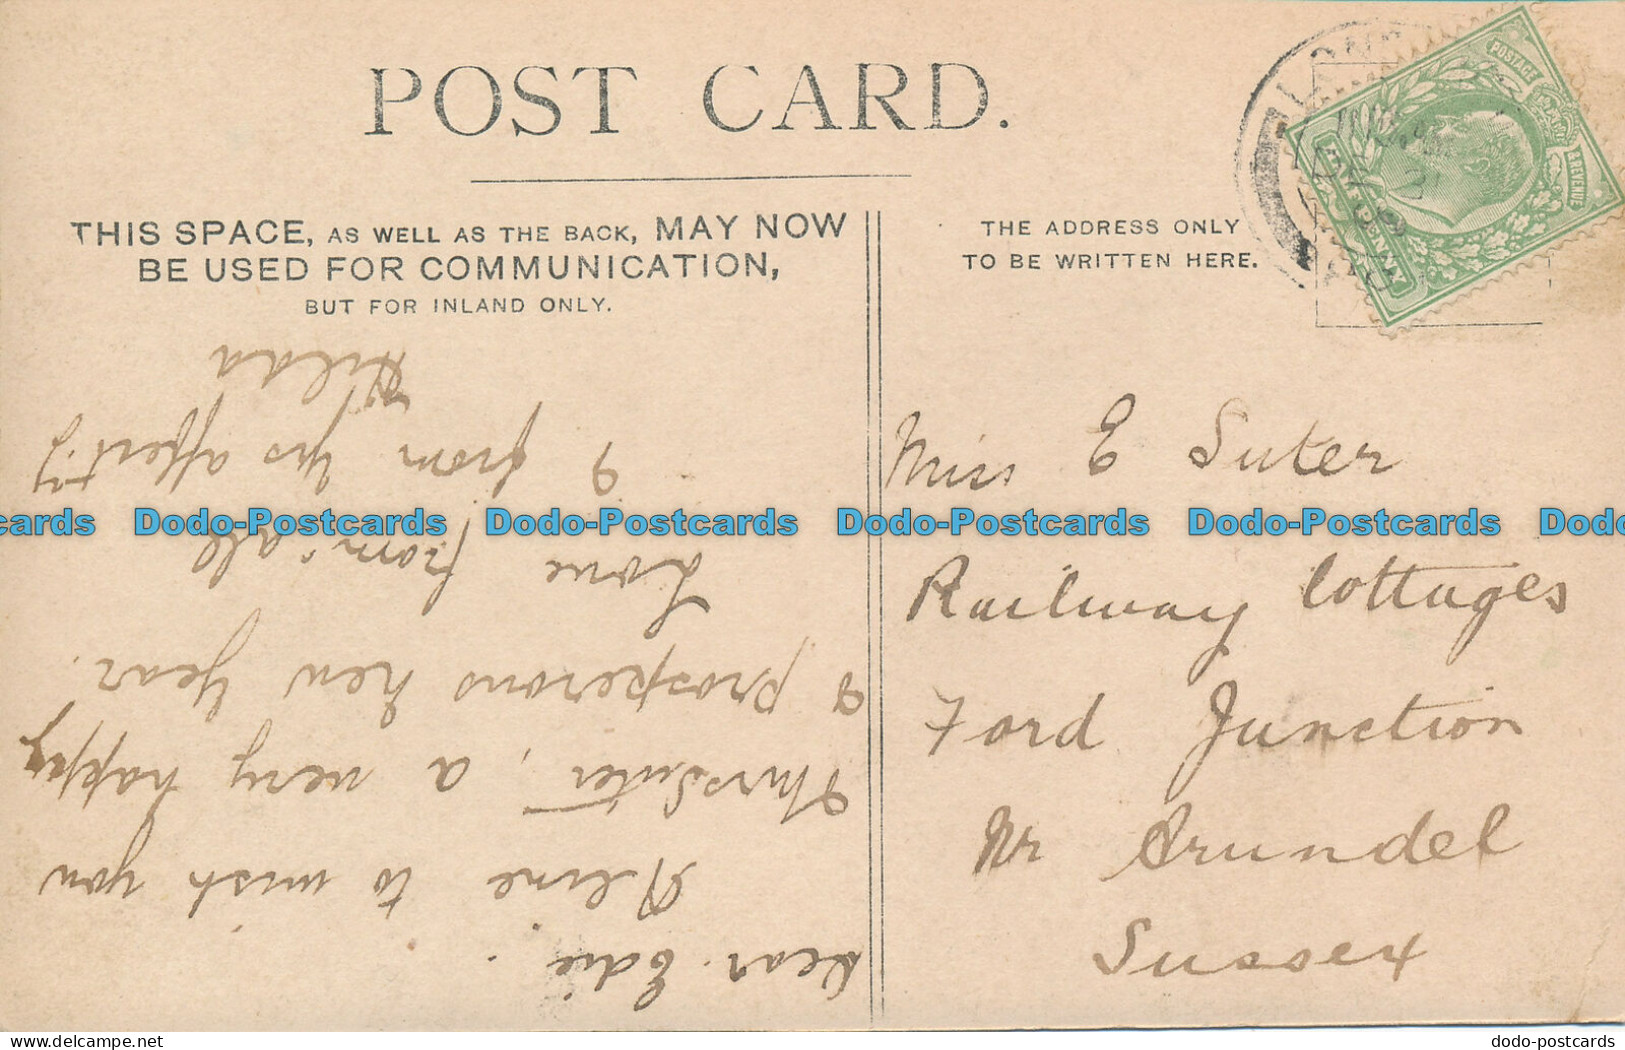 POST CARD.
THIS SPACE, AS WELL AS THE BACK, MAY NOW
BE USED FOR COMMUNICATION,
BUT FOR INLAND ONLY.
THE ADDRESS ONLY
TO BE WRITTEN HERE.
POSTAGE
& REVENUE
Dear Edie.
A line to wish you
Mrs Suter, a very happy
& prosperous new year.
Love from all
& from yrs affect:y
Hilda
Miss E Suter
Railway Cottages
Ford Junction
Nr Arundel
Sussex
cards Dodo-Postcards Dodo-Postcards Dodo-Postcards Dodo-Postcards Dodo
www.delcampe.net
dodo-postcards